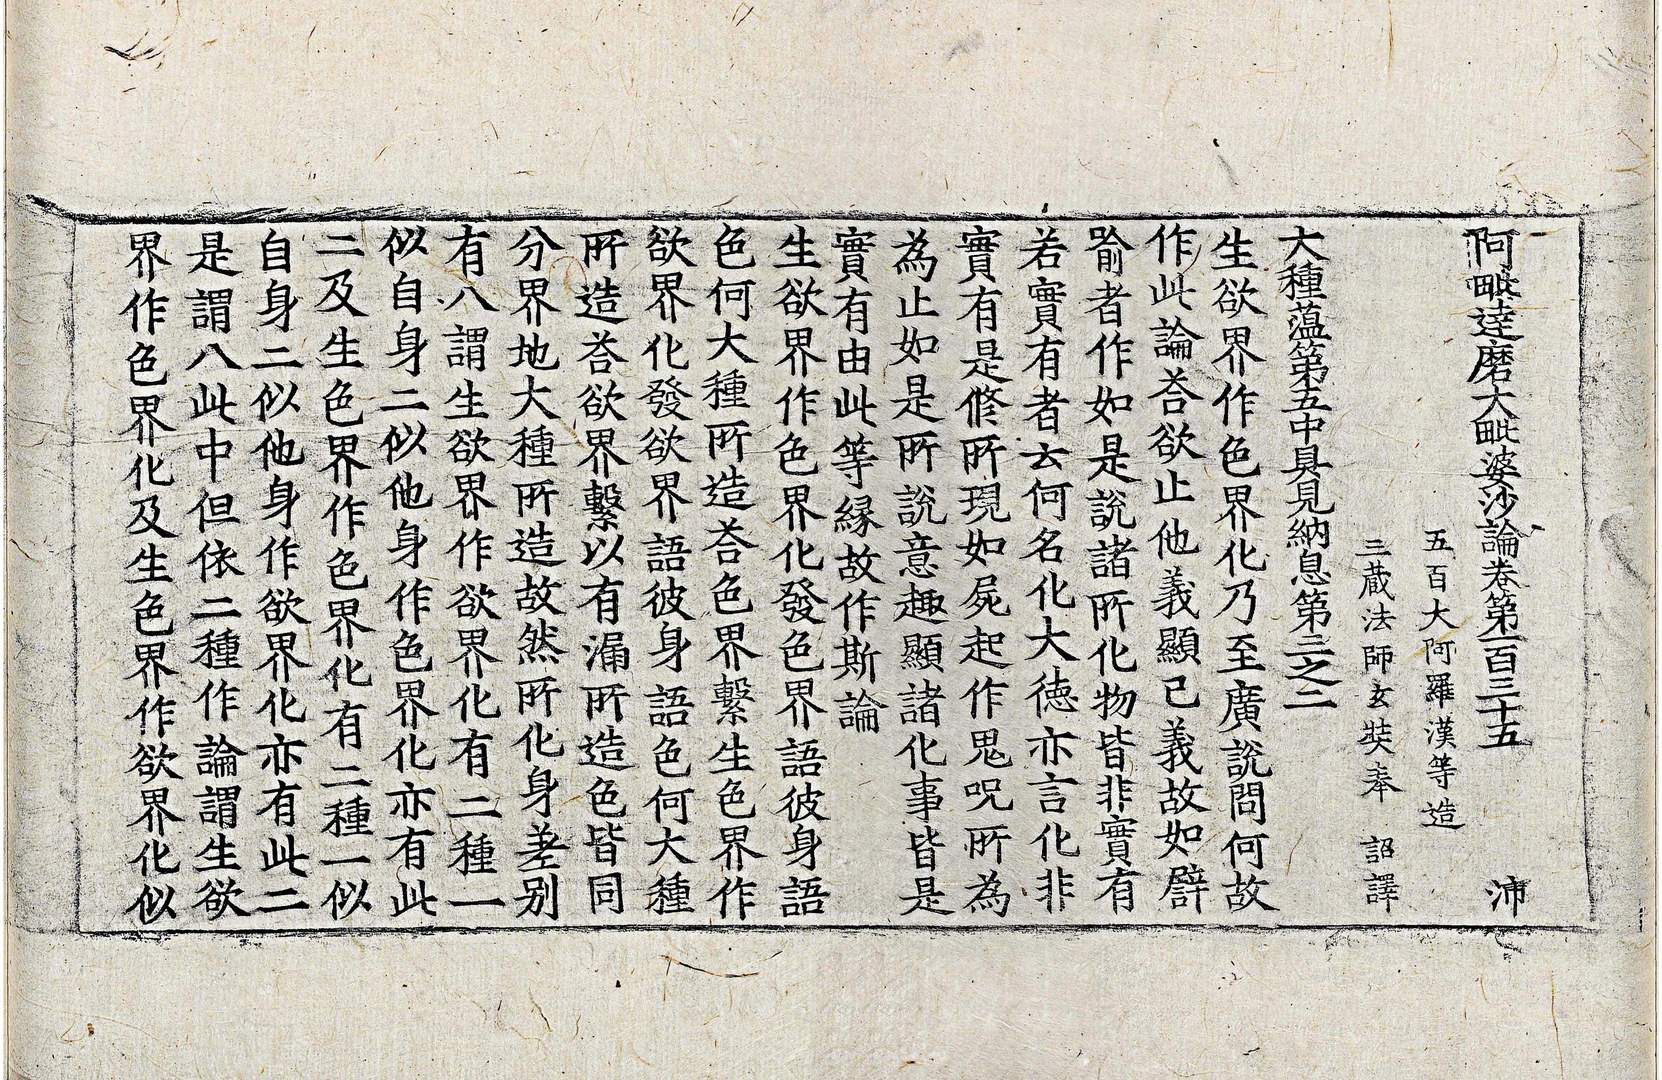 阿毗達磨大毗婆沙論卷第一百三十五 沛
五百大阿羅漢等造
三蔵法師玄奘奉 詔譯
大種蘊第五中具見納息第三之二
生欲界作色界化乃至廣說問何故
作此論荅欲止他義顯己義故如譬
喻者作如是說諸所化物皆非實有
若實有者云何名化大德亦言化非
實有是修所現如屍起作鬼呪所為
為止如是所說意趣顯諸化事皆是
實有由此等緣故作斯論
生欲界作色界化發色界語彼身語
色何大種所造荅色界繫生色界作
欲界化發欲界語彼身語色何大種
所造荅欲界繫以有漏所造色皆同
分界地大種所造故然所化身差别
有八謂生欲界作欲界化有二種一
似自身二似他身作色界化亦有此
二及生色界作色界化有二種一似
自身二似他身作欲界化亦有此二
是謂八此中但依二種作論謂生欲
界作色界化及生色界作欲界化似